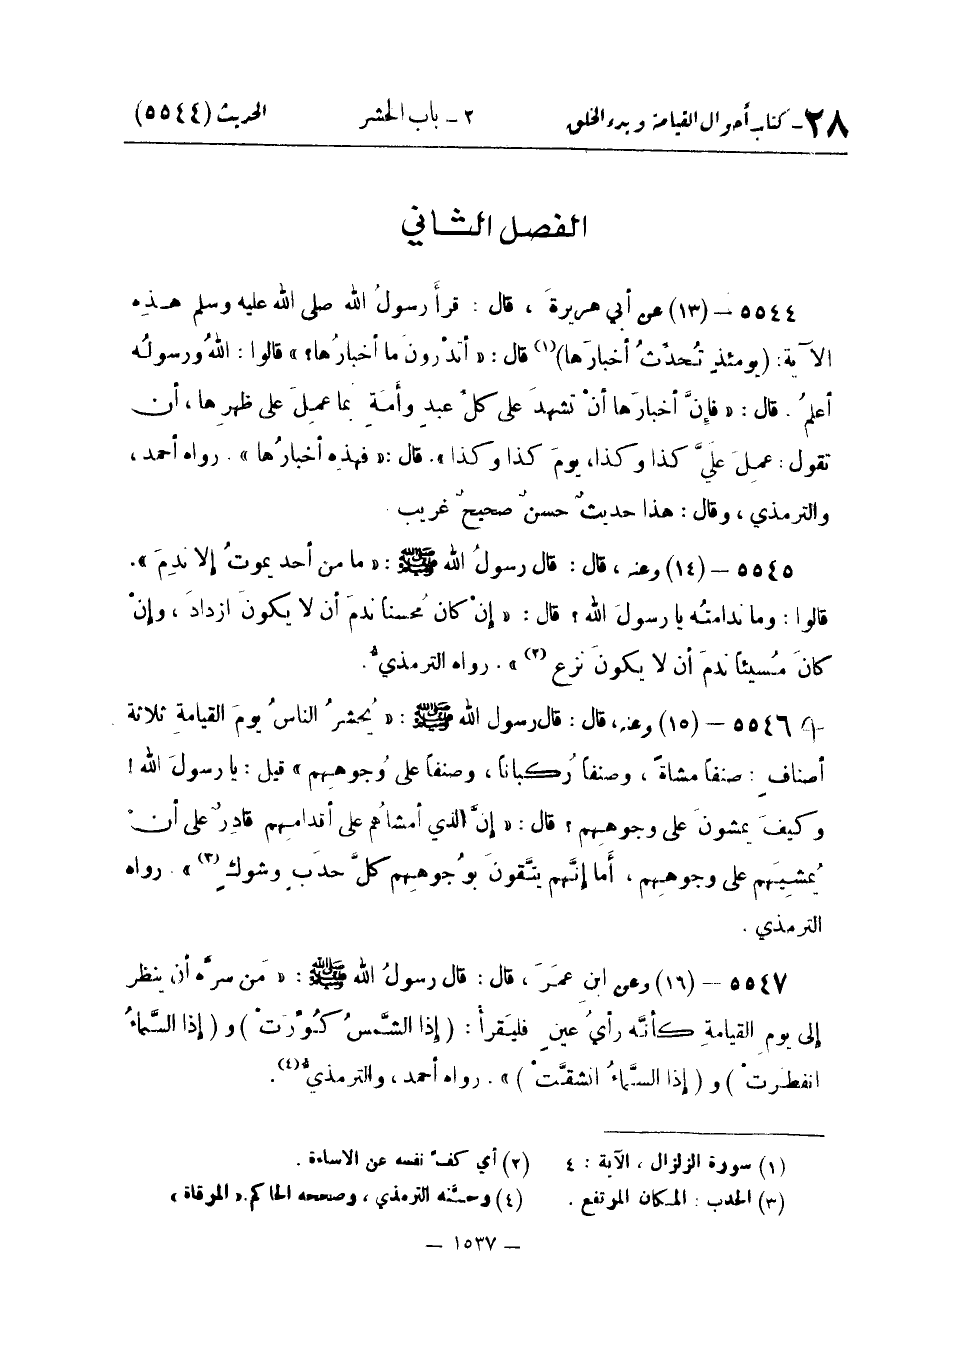 ٢٨ـ كتاب أحوال القيامة وبدء الخلق ٢ ـ باب الحشر الحديث (٥٥٤٤)
الفصل الثاني
٥٥٤٤ – (١٣) عن أبي هريرةَ ، قال : قرأَ رسولُ الله صلى الله عليه وسلم هـذه
الآية: (يومئذٍ تُحدِّثُ أخبارَها)(١) قال : « أتدْرونَ ما أخبارُها؟ » قالوا : اللهُ ورسولُه
أعلمُ . قال : « فإنَّ أخبارَها أنْ تشهدَ على كلِّ عبدٍ وأَمَةٍ بما عملَ على ظهرِها ، أن
تقول : عملَ عليَّ كذا وكذا، يومَ كذا وكذا ». قال :« فهذِه أخبارُها » . رواه أحمد ،
والترمذي ، وقال : هذا حديثٌ حسنٌ صحيحٌ غريب
٥٥٤٥ – (١٤) وعنه ، قال : قال رسولُ الله ﷺ : « ما من أحد يموتُ إلا ندِمَ ».
قالوا : وما ندامتُه يا رسولَ الله ؟ قال : « إنْ كان مُحسناً ندمَ أن لا يكونَ ازدادَ ، وإنْ
كانَ مُسيئاً ندمَ أن لا يكونَ نزع (٢) » . رواه الترمذي .
٥٥٤٦ – (١٥) وعنه، قال : قال رسول الله ﷺ : « يُحشرُ الناسُ يومَ القيامةِ ثلاثة
أصنافٍ : صنفاً مشاةً ، وصنفاً رُكباناً ، وصنفاً على وُجوههِم » قيل : يا رسولَ الله !
وكيفَ يمشونَ على وجوههِم ؟ قال : « إنَّ الذي أمشاهُم على أقدامِهم قادرٌ على أنْ
يُمشيَهم على وجوههِم ، أَما إنَّهم يتَّقونَ بوُجوههِم كلَّ حدَبٍ وشوكٍ (٣) » . رواه
الترمذي .
٥٥٤٧ — (١٦) وعن ابنِ عمَرَ ، قال : قال رسولُ الله ﷺ : « مَن سرَّه أن ينظر
إلى يومِ القيامةِ كأنَّه رأيُ عينٍ فليَقرأْ : ( إذا الشَّمسُ كُوِّرَتْ ) و ( إذا السَّماءُ
انفطَرتْ ) و ( إذا السَّماءُ انشقَّتْ ) » . رواه أحمد ، والترمذي (٤).
(١) سورة الزلزال ، الآية : ٤ (٢) أي كفَّ نفسه عن الاساءة .
(٣) الحدب : المكان المرتفع . (٤) وحسَّنه الترمذي ، وصححه الحاكم.« المرقاة »
— ١٥٣٧ —